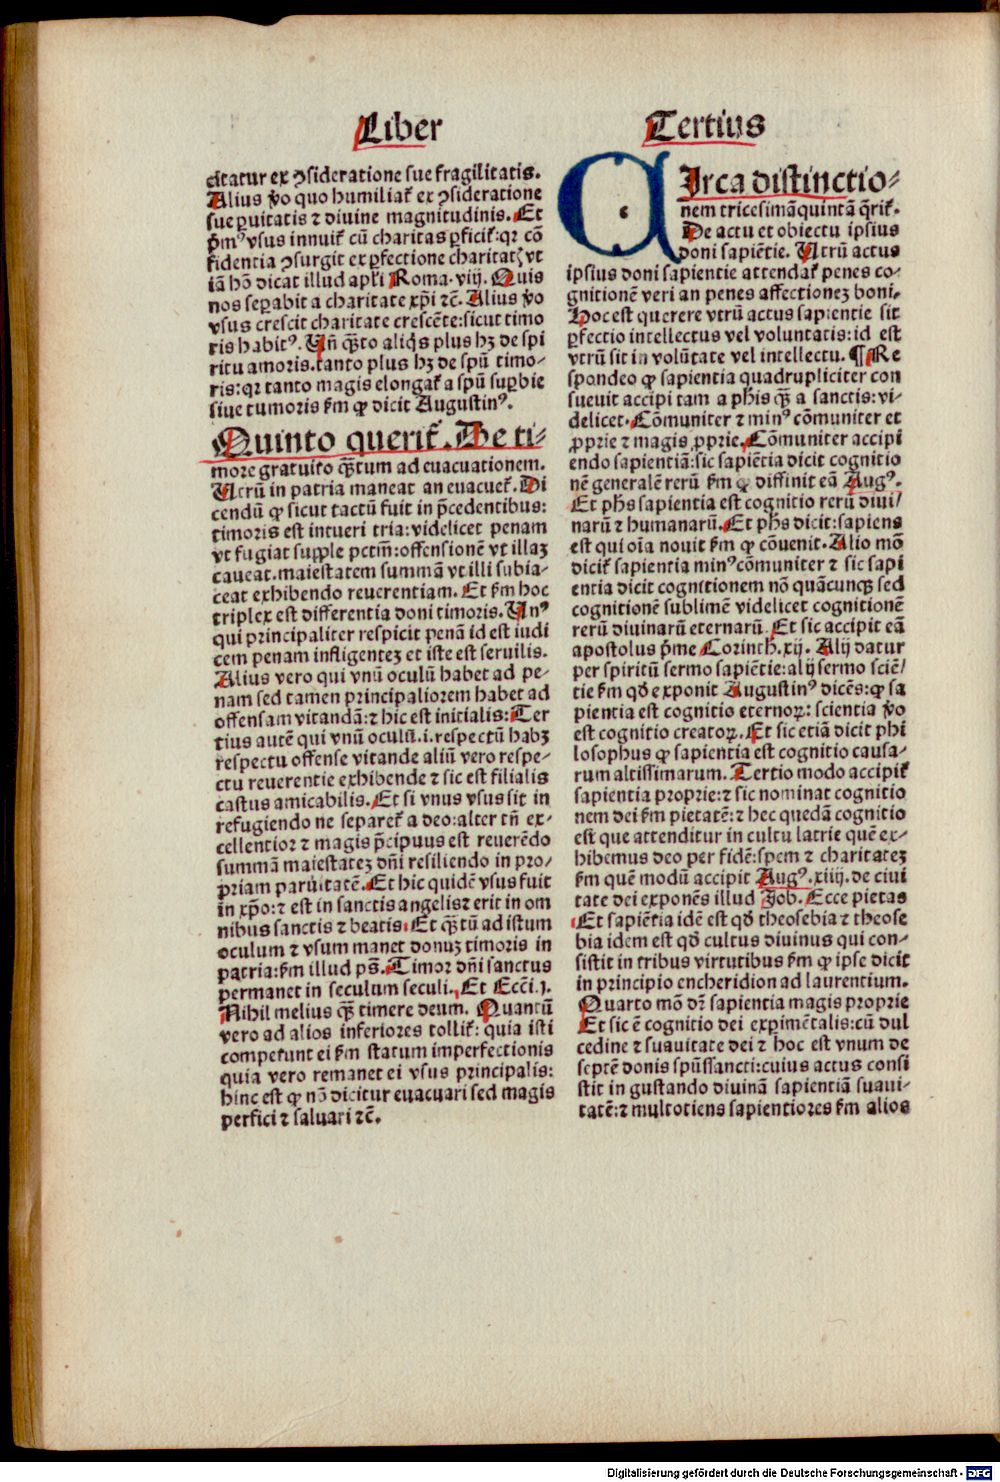 Liber
Tertius
citatur ex ꝯsideratione sue fragilitatis.
Alius ꝟo quo humiliat᷑ ex ꝯsideratione
sue ꝑuitatis ⁊ diuine magnitudinis. Et
p̄mꝰ vsus innuit᷑ cū charitas ꝑficit᷑: qꝛ cō
fidentia ꝯsurgit ex ꝑfectione charitatꝭ vt
iā hō dicat illud apl̄i Roma. viij. Quis
nos seꝑabit a charitate xp̄i ⁊c̄. Alius ꝟo
vsus crescit charitate crescēte: sicut timo
ris habitꝰ. Vn̄ qᷓ̄to aliqͥs plus hꝫ de spi
ritu amoris. tanto plus hꝫ de spū timo⸗
ris: qꝛ tanto magis elongat᷑ a spū suꝑbie
siue tumoris ẜm ꝙ dicit Augustinꝰ.
Quinto querit᷑. De ti⸗
more gratuito qᷓ̄tum ad euacuationem.
Vtrū in patria maneat an euacuet᷑. Di
cendū ꝙ sicut tactū fuit in p̄cedentibus:
timoris est intueri tria: videlicet penam
vt fugiat supple pctm̄: offensionē vt illaꝫ
caueat. maiestatem summā vt illi subia⸗
ceat exhibendo reuerentiam. Et ẜm hoc
triplex est differentia doni timoris. Vnꝰ
qui principaliter respicit penā id est iudi
cem penam infligenteꝫ et iste est seruilis.
Alius vero qui vnū oculū habet ad pe⸗
nam sed tamen principaliorem habet ad
offensam vitandā: ⁊ hic est initialis: Ter
tius autē qui vnū oculū. i. respectū habꝫ
respectu offense vitande aliū vero respe⸗
ctu reuerentie exhibende ⁊ sic est filialis
castus amicabilis. Et si vnus vsus sit in
refugiendo ne separet᷑ a deo: alter tn̄ ex⸗
cellentior ⁊ magis p̄cipuus est reuerēdo
summā maiestateꝫ dn̄i resiliendo in pro⸗
priam paruitatē. Et hic quidē vsus fuit
in xp̄o: ⁊ est in sanctis angelis ⁊ erit in om
nibus sanctis ⁊ beatis. Et qᷓ̄tū ad istum
oculum ⁊ vsum manet donuꝫ timoris in
patria: ẜm illud ps̄. Timor dn̄i sanctus
permanet in seculum seculi. Et Ecc̄i. j.
Nihil melius qᷓ̄ timere deum. Quantū
vero ad alios inferiores tollit᷑: quia isti
competunt ei ẜm statum imperfectionis
quia vero remanet ei vsus principalis:
hinc est ꝙ nō dicitur euacuari sed magis
perfici ⁊ saluari ⁊c̄.
CIrca distinctio⸗
nem tricesimāquintā q̄rit᷑.
De actu et obiectu ipsius
doni sapiētie. Vtrū actus
ipsius doni sapientie attendat᷑ penes co⸗
gnitionē veri an penes affectioneꝫ boni.
Hoc est querere vtrū actus sapientie sit
ꝑfectio intellectus vel voluntatis: id est
vtrū sit in volūtate vel intellectu. ¶ Re
spondeo ꝙ sapientia quadrupliciter con
sueuit accipi tam a ph̄is qᷓ̄ a sanctis: vi⸗
delicet. Cōmuniter ⁊ minꝰ cōmuniter et
ꝓprie ⁊ magis ꝓprie. Cōmuniter accipi
endo sapientiā: sic sapiētia dicit cognitio
nē generalē rerū ẜm ꝙ diffinit eā Augꝰ.
Et ph̄s sapientia est cognitio rerū diui/
narū ⁊ humanarū. Et ph̄s dicit: sapiens
est qui oīa nouit ẜm ꝙ cōuenit. Alio mō
dicit᷑ sapientia minꝰ cōmuniter ⁊ sic sapi
entia dicit cognitionem nō quācunqꝫ sed
cognitionē sublimē videlicet cognitionē
rerū diuinarū eternarū. Et sic accipit eā
apostolus p̄me Corinth. xij. Alij datur
per spiritū sermo sapiētie: alij sermo sciē/
tie ẜm qd̄ exponit Augustinꝰ dicēs: ꝙ sa
pientia est cognitio eternoꝝ: scientia ꝟo
est cognitio creatoꝝ. Et sic etiā dicit phi
losophus ꝙ sapientia est cognitio causa⸗
rum altissimarum. Tertio modo accipit᷑
sapientia proprie: ⁊ sic nominat cognitio
nem dei ẜm pietatē: ⁊ hec quedā cognitio
est que attenditur in cultu latrie quē ex⸗
hibemus deo per fidē: spem ⁊ charitateꝫ
ẜm quē modū accipit Augꝰ. xiiij. de ciui
tate dei exponēs illud Job. Ecce pietas
Et sapiētia idē est qd̄ theosebia ⁊ theose
bia idem est qd̄ cultus diuinus qui con⸗
sistit in tribus virtutibus ẜm ꝙ ipse dicit
in principio encheridion ad laurentium.
Quarto mō dr̄ sapientia magis proprie
Et sic ē cognitio dei experimētalis: cū dul
cedine ⁊ suauitate dei ⁊ hoc est vnum de
septē donis spūssancti: cuius actus consi
stit in gustando diuinā sapientiā suaui⸗
tatē: ⁊ multotiens sapientiores ẜm alios
Digitalisierung gefördert durch die Deutsche Forschungsgemeinschaft - DFG